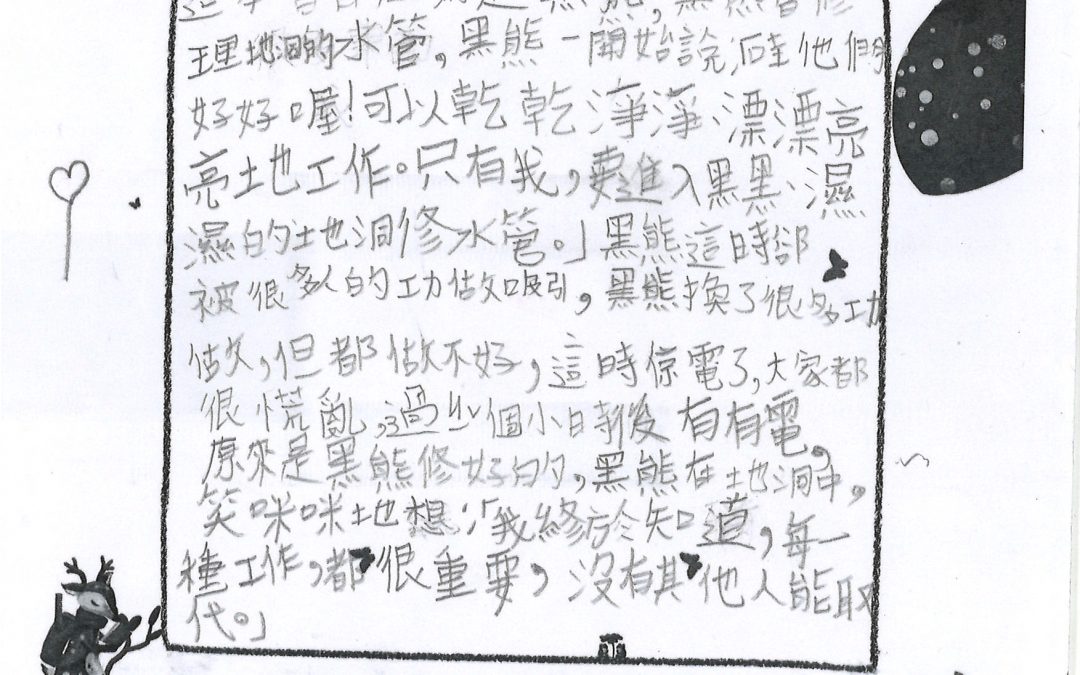 黑熊,黑熊會修
理地洞的水管,黑熊一開始說:「哇他們
好好喔!可以乾乾淨淨、漂漂亮
亮地工作。只有我,要進入黑黑、濕
濕的地洞修水管。」黑熊這時卻
被很多人的功做吸引,黑熊換了很多功
做,但都做不好,這時停電了,大家都
很慌亂,過個小時後有有電,
原來是黑熊修好的,黑熊在地洞中,
笑咪咪地想:「我終於知道,每一
種工作,都很重要,沒有其他人能取
代。」